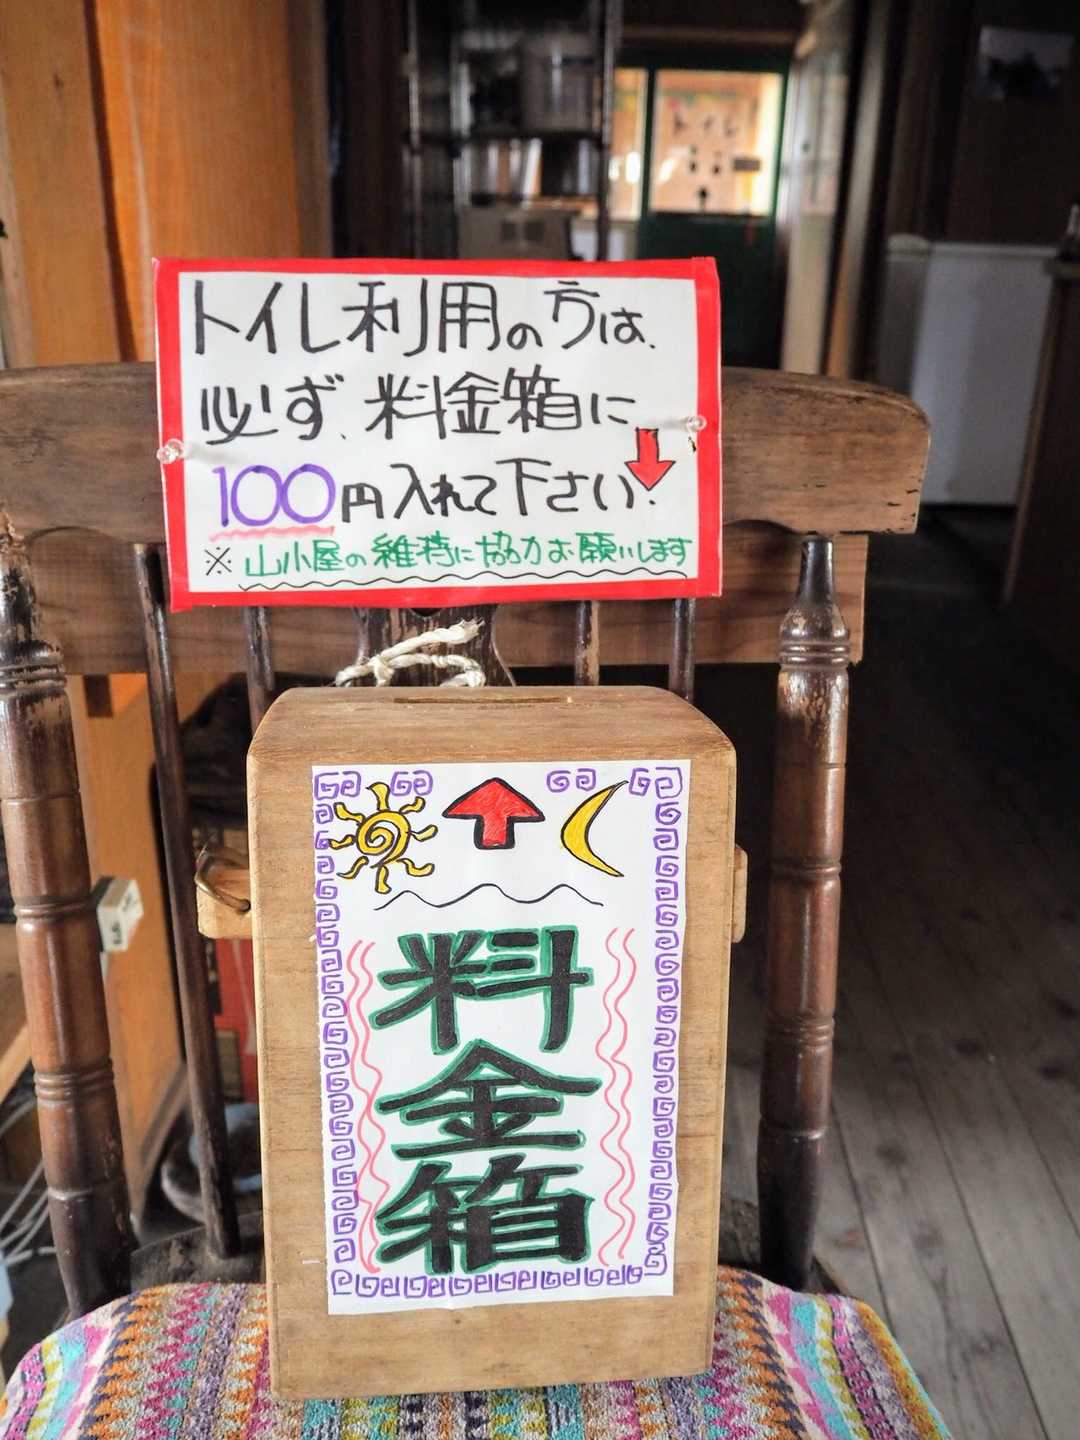 トイレ
トイレ利用の方は、
必ず、料金箱に
100円入れて下さい。
※山小屋の維持に協力お願いします
料金箱